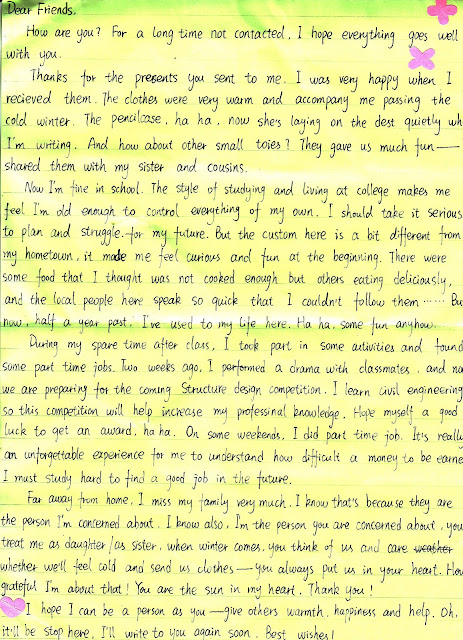 Dear Friends,
How are you? For a long time not contacted, I hope everything goes well
with you.
Thanks for the presents you sent to me. I was very happy when I
recieved them. The clothes were very warm and accompany me passing the
cold winter. The pencilcase, ha ha, now she's laying on the dest quietly wh
I'm writing. And how about other small toies? They gave us much fun —
shared them with my sister and cousins.
Now I'm fine in school. The style of studying and living at college makes me
feel I'm old enough to control everything of my own. I should take it serious
to plan and struggle for my future. But the custom here is a bit different from
my hometown, it made me feel curious and fun at the beginning. There were
some food that I thought was not cooked enough but others eating deliciously,
and the local people here speak so quick that I couldn't follow them ······ Bu
now, half a year past, I've used to my life here. Ha ha, some fun anyhow.
During my spare time after class, I took part in some activities and found
some part time jobs. Two weeks ago, I performed a drama with classmates, and no
we are preparing for the coming Structure design competition. I learn civil engineering
so this competition will help increase my professinal knowledge. Hope myself a good
luck to get an award, ha ha. On some weekends, I did part time job. It's really
an unforgettable experience for me to understand how difficult a money to be earne
I must study hard to find a good job in the future.
Far away from home, I miss my family very much. I know that's because they are
the person I'm concerned about. I know also, I'm the person you are concerned about, you
treat me as daughter/as sister, when winter comes, you think of us and care weather
whether we'll feel cold and send us clothes — you always put us in your heart. How
grateful I'm about that! You are the sun in my heart. Thank you!
I hope I can be a person as you — give others warmth, happiness and help. Oh,
it'll be stop here, I'll write to you again soon. Best wishes!